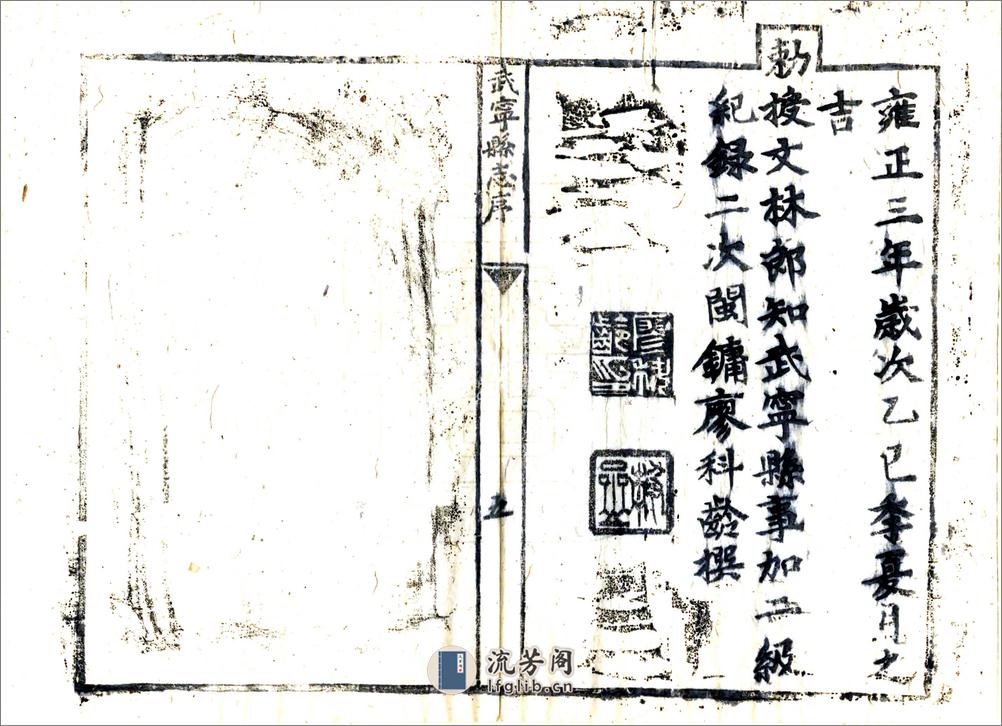 雍正三年歲次乙巳季夏月之
吉
勅授文林郎知武寧縣事加二級
紀錄二次閩鏞廖科齡撰
廖科齡印
武寧縣志序
五
流芳阁
lfglib.cn